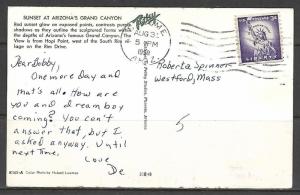 SUNSET AT ARIZONA'S GRAND CANYON
Red sunset glow on exposed points, contrasts purple
shadows outlining the sculptured forms within
the depths of Arizona's famous Grand Canyon. The
View is from Hopi Point, west of the South Rim
lage on the Rim Drive.
Petley
AUG 31
5 PM
1959
ARIZ
3¢
LIBERTY
Dear Bobby,
One more day and
that's all. How are
you and dreamboy
coming? You can't
answer that, but I
asked anyway. Until
next time,
Love
De
Roberta Spinner
Westford, Mass
5
Color Photo by Hubert Lowman